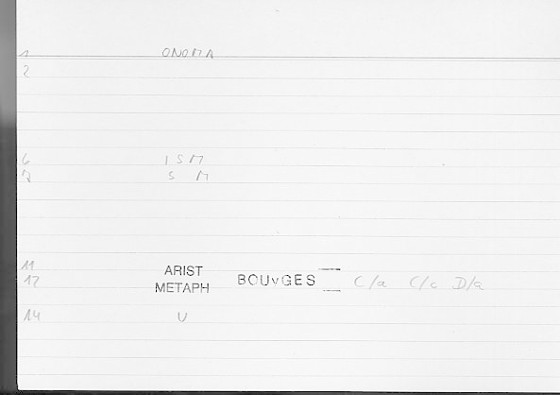 1 ONOMA
2
6 ISM
7 S M
11 ARIST
12 METAPH BOUvGES C/a C/c D/a
14 U